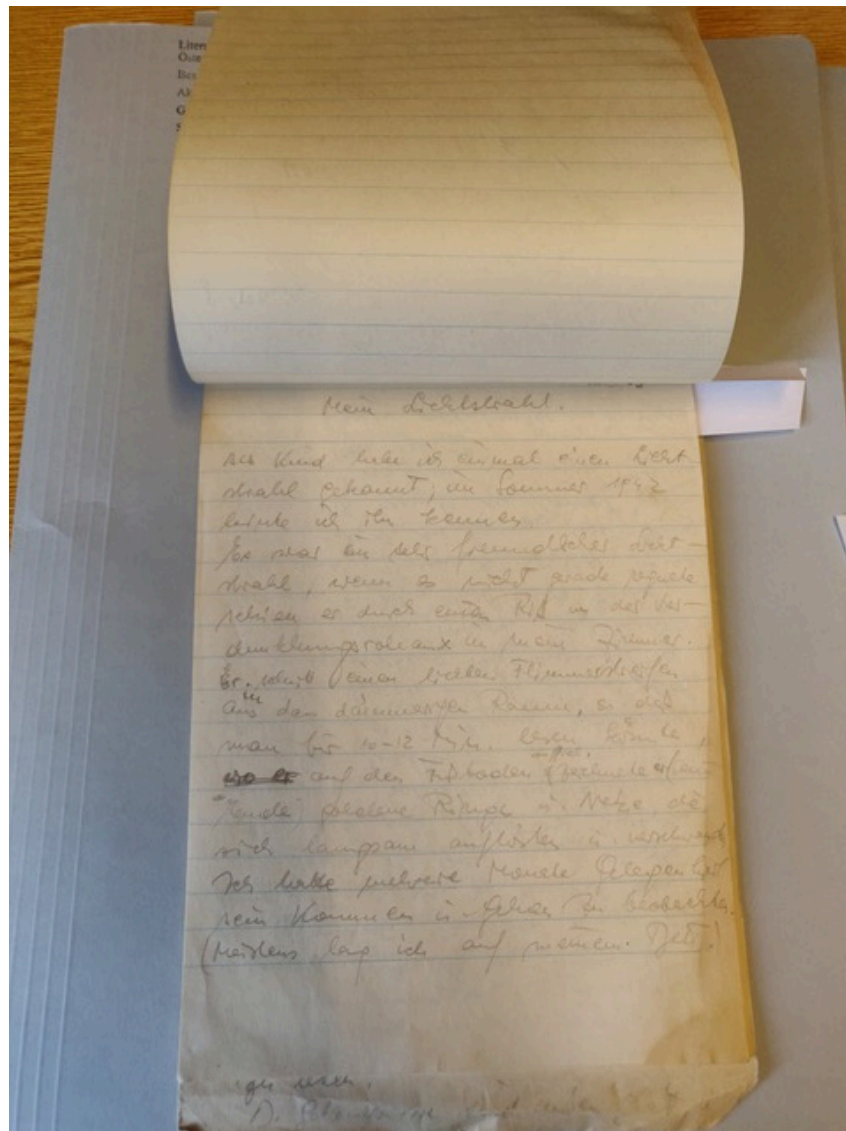 Liter
Öste
Bes
Ak
G
S
Mein Lichtstrahl.
Als Kind habe ich einmal einen Licht-
strahl gekannt, im Sommer 1942
lernte ich ihn kennen
Es war ein sehr freundlicher Licht-
strahl, wenn es nicht gerade regnete
schien er durch einen Riß in der Ver-
dunklungsroleaux in mein Zimmer.
Er schnitt einen lichten Flimmerstreifen
in den dämmerigen Raum, so daß
man für 10-12 Min. lesen könnte,
wo er auf den Fußboden zeichnete er
goldene Ringe u. Netze die
sich langsam auflösten u. verschwand
Ich hatte mehrere Monate Gelegenheit
sein Kommen u. Gehen zu beobachten.
(Meistens lag ich auf meinem Bett!)